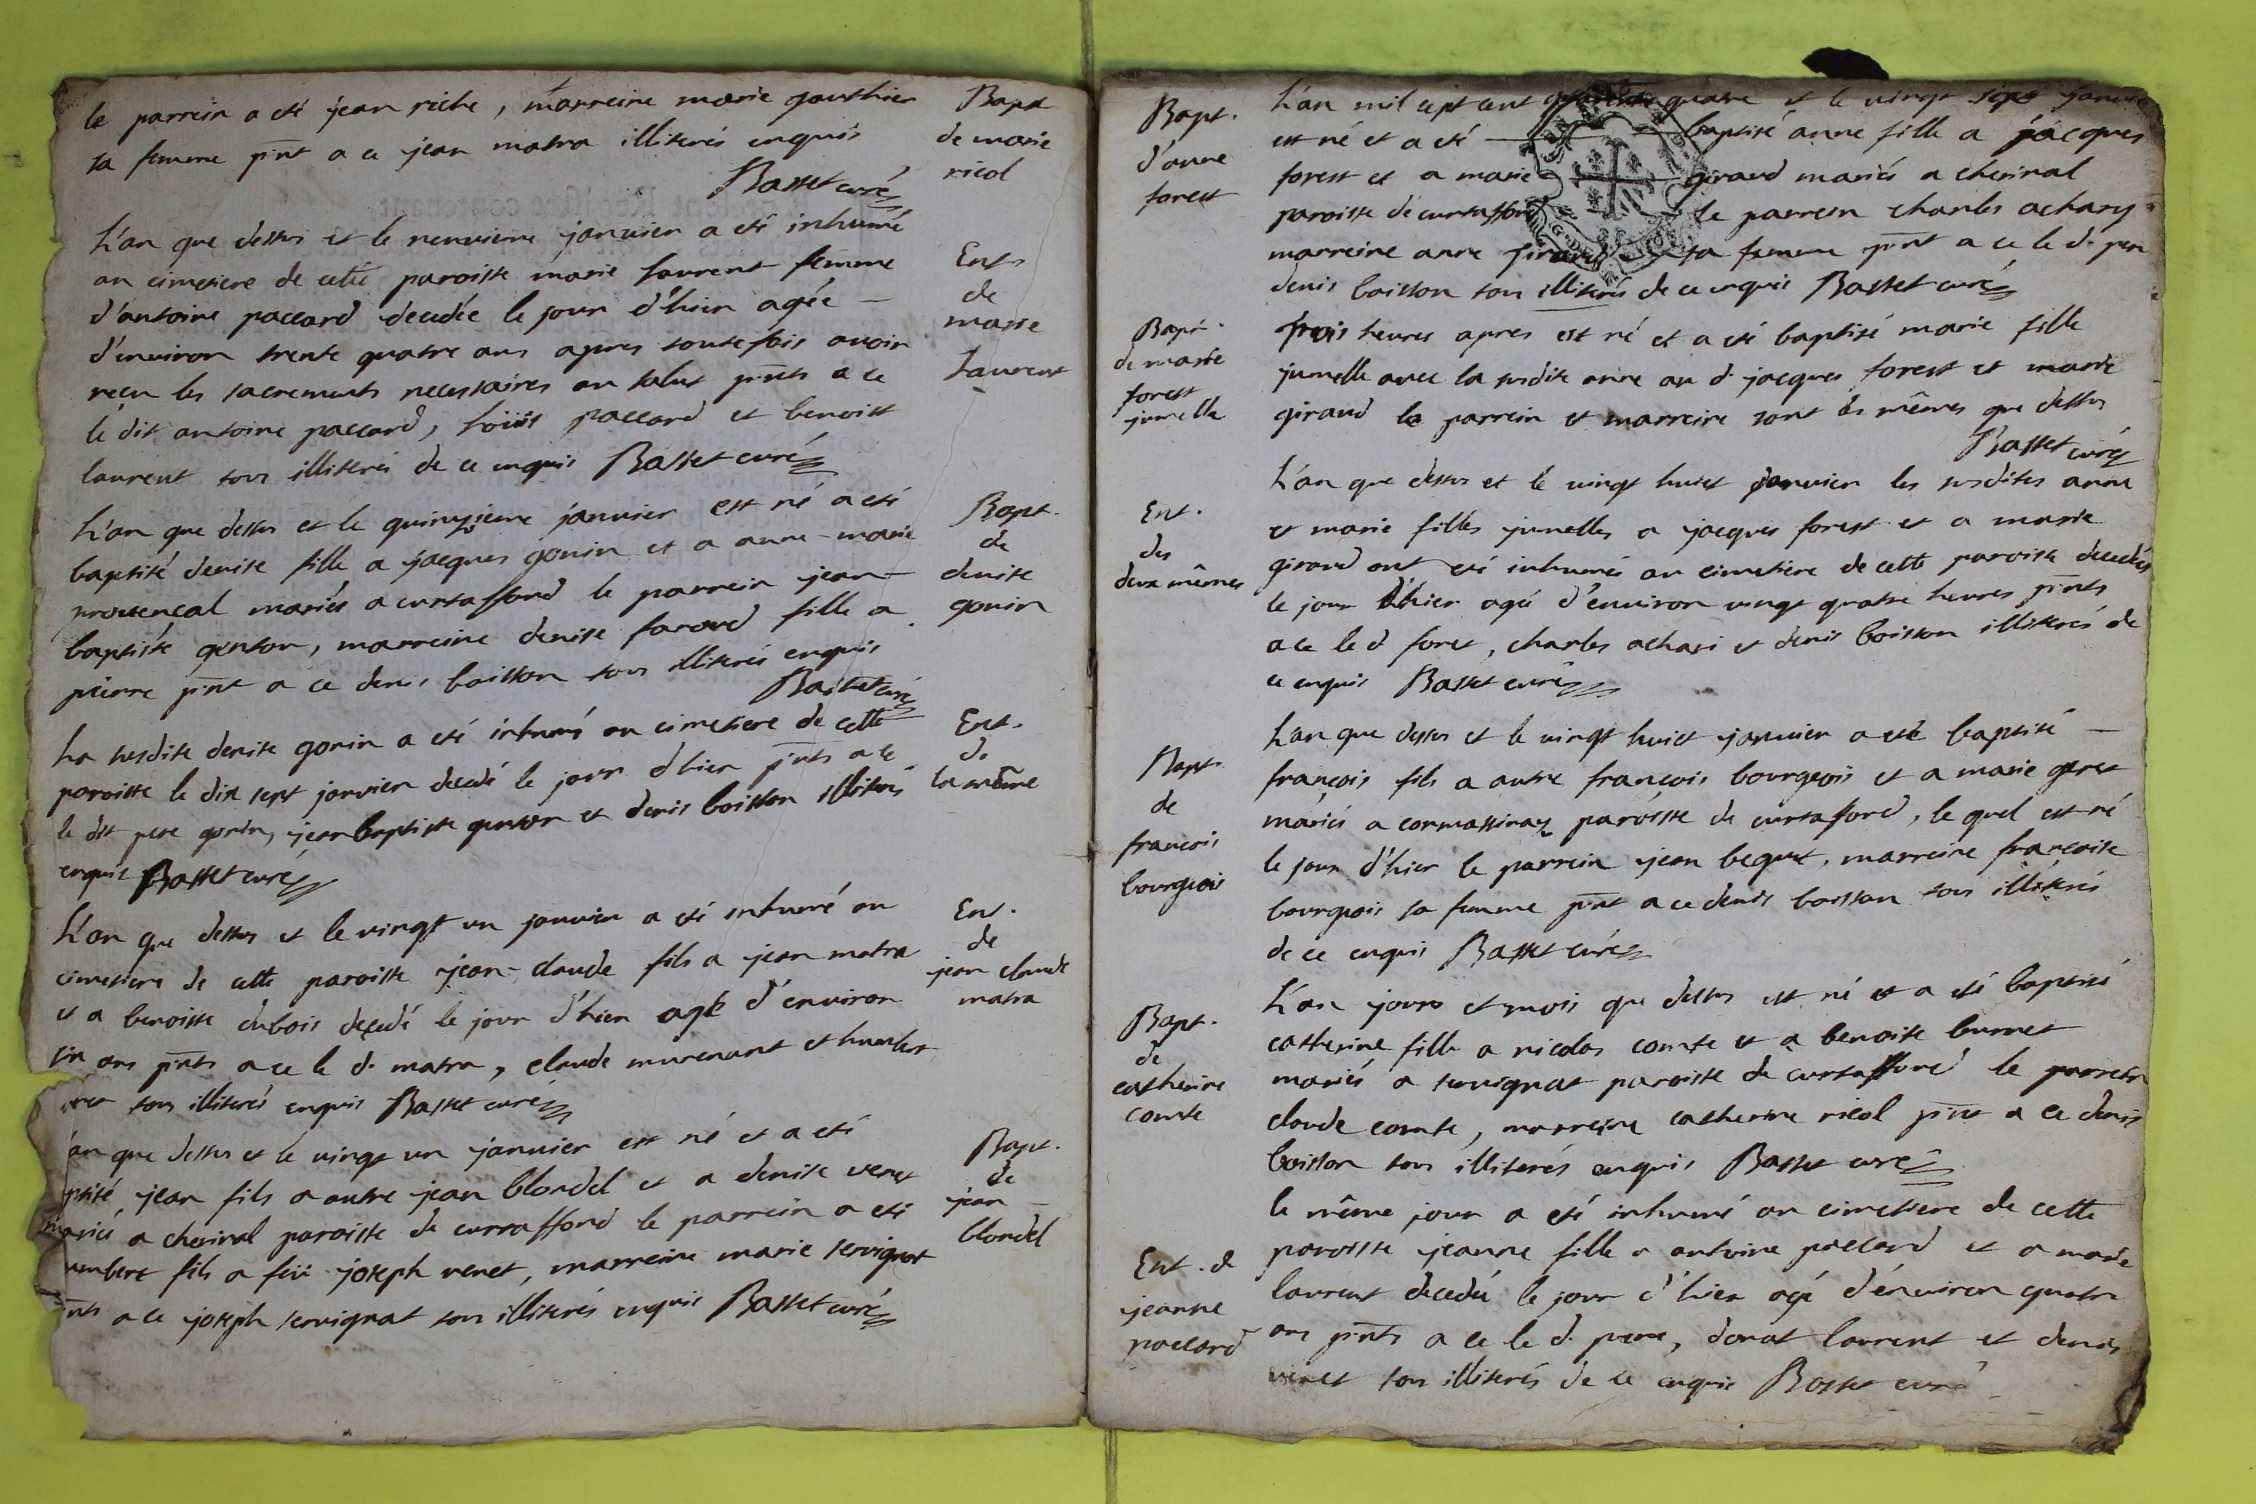 le parrein a eté jean riche, marreine marie gauthier
sa femme pnt a ce jean matra illiterés enquis
Basset curé
Bapt
de marie
nicol
L'an que dessus et le neuvieme janvier a eté inhumé
au cimetiere de cette paroisse marie laurent femme
d'antoine paccard decedée le jour d'hier agée —
d'environ trente quatre ans apres toutefois avoir
recu les sacrements necessaires au salut pnts a ce
le dit antoine paccard, loüis paccard et benoist
laurent tous illiterés de ce enquis Basset curé
Ent.
de
marie
Laurent
L'an que dessus et le quinzieme janvier est né a eté
baptisé denise fille a jacques gonin et a anne-marie
provencal mariés a curtaffond le parrein jean-
baptiste genton, marreine denise faraud fille a
pierre pnt a ce denis boisson tous illiterés enquis
Basset curé
Bapt.
de
denise
gonin
La susdite denise gonin a eté inhumé au cimetiere de cette
paroisse le dix sept janvier decedé le jour d'hier pnts a ce
le dit pere gonin, jean baptiste genton et denis boisson illiterés
enquis Basset curé
Ent.
de
la même
L'an que dessus et le vingt un janvier a eté inhumé au
cimetiere de cette paroisse jean-claude fils a jean matra
et a benoiste dubois decedé le jour d'hier agé d'environ
six ans pnts a ce le d. matra, claude murenant et humbert
venet tous illiterés enquis Basset curé
Ent.
de
jean claude
matra
an que dessus et le vingt un janvier est né et a eté
ptisé jean fils a autre jean blondel et a denise venet
mariés a cherinal paroisse de curtaffond le parrein a eté
umbert fils a feu joseph venet, marreine marie servignat
nts a ce joseph servignat tous illiterés enquis Basset curé
Bapt.
de
jean
blondel
Bapt.
d'anne
forest
L'an mil sept cent quatre et le vingt sept janvier
est né et a eté — baptisé anne fille a jacques
forest et a marie giraud mariés a cherinal
paroisse de curtaffond le parrein charles achary
marreine anne giraud sa femme pnt a ce le d. pere
denis boisson tous illiterés de ce enquis Basset curé
Bapt.
de marie
forest
jumelle
trois heures apres est né et a eté baptisé marie fille
jumelle avec la susdite anne au d. jacques forest et marie
giraud le parrein et marreine sont les mêmes que dessus
Basset curé
Ent.
des
deux mêmes
L'an que dessus et le vingt huict janvier les susdites anne
et marie filles jumelles a jacques forest et a marie
giraud ont eté inhumés au cimetiere de cette paroisse decedés
le jour d'hier agé d'environ vingt quatre heures pnts
a ce le d. foret, charles achari et denis boisson illiterés de
ce enquis Basset curé
Bapt.
de
francois
bourgeois
L'an que dessus et le vingt huict janvier a eté baptisé —
françois fils a autre françois bourgeois et a marie geret
mariés a cormassinay paroisse de curtaffond, le quel est né
le jour d'hier le parrein jean beguet, marreine françoise
bourgeois sa femme pnt a ce denis boisson tous illiterés
de ce enquis Basset curé
Bapt.
de
catherine
comte
L'an jours et mois que dessus est né et a eté baptisé
catherine fille a nicolas comte et a benoiste burnet
mariés a servignat paroisse de curtaffond le parrein
claude comte, marreine catherine nicol pnt a ce denis
boisson tous illiterés enquis Basset curé
Ent. de
jeanne
paccard
le même jour a eté inhumé au cimetiere de cette
paroisse jeanne fille a antoine paccard et a marie
laurent decedé le jour d'hier agé d'environ quatre
ans pnts a ce le d. pere, donat laurent et denis
venet tous illiterés de ce enquis Basset curé